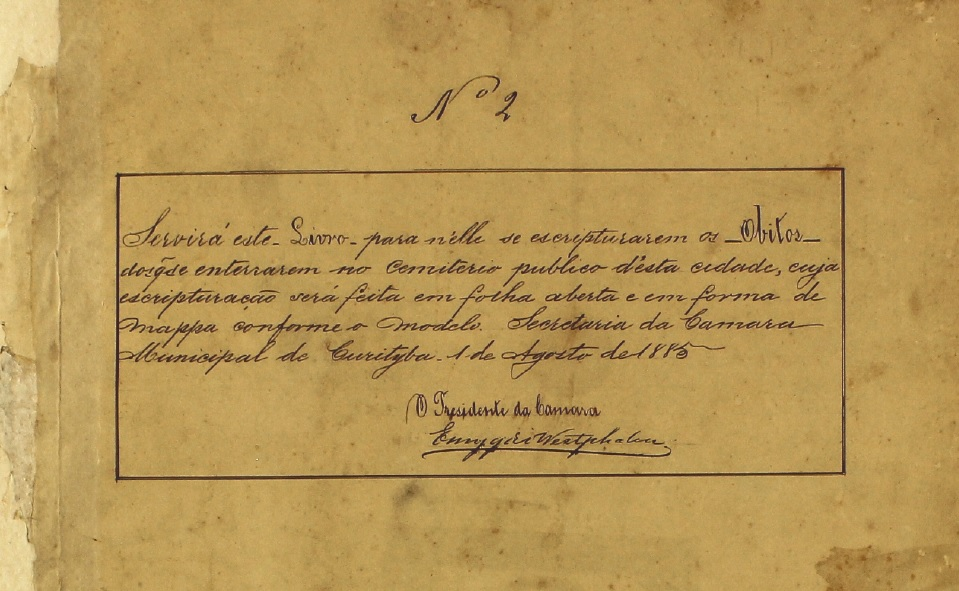 Nº 2
Servirá este Livro para n'elle se escripturarem os Obitos
dos q̃ se enterrarem no Cemiterio publico d'esta cidade, cuja
escripturação será feita em folha aberta e em forma de
mappa conforme o modelo. Secretaria da Camara
Municipal de Curityba 1 de Agosto de 1885
O Presidente da Camara
Westphalen